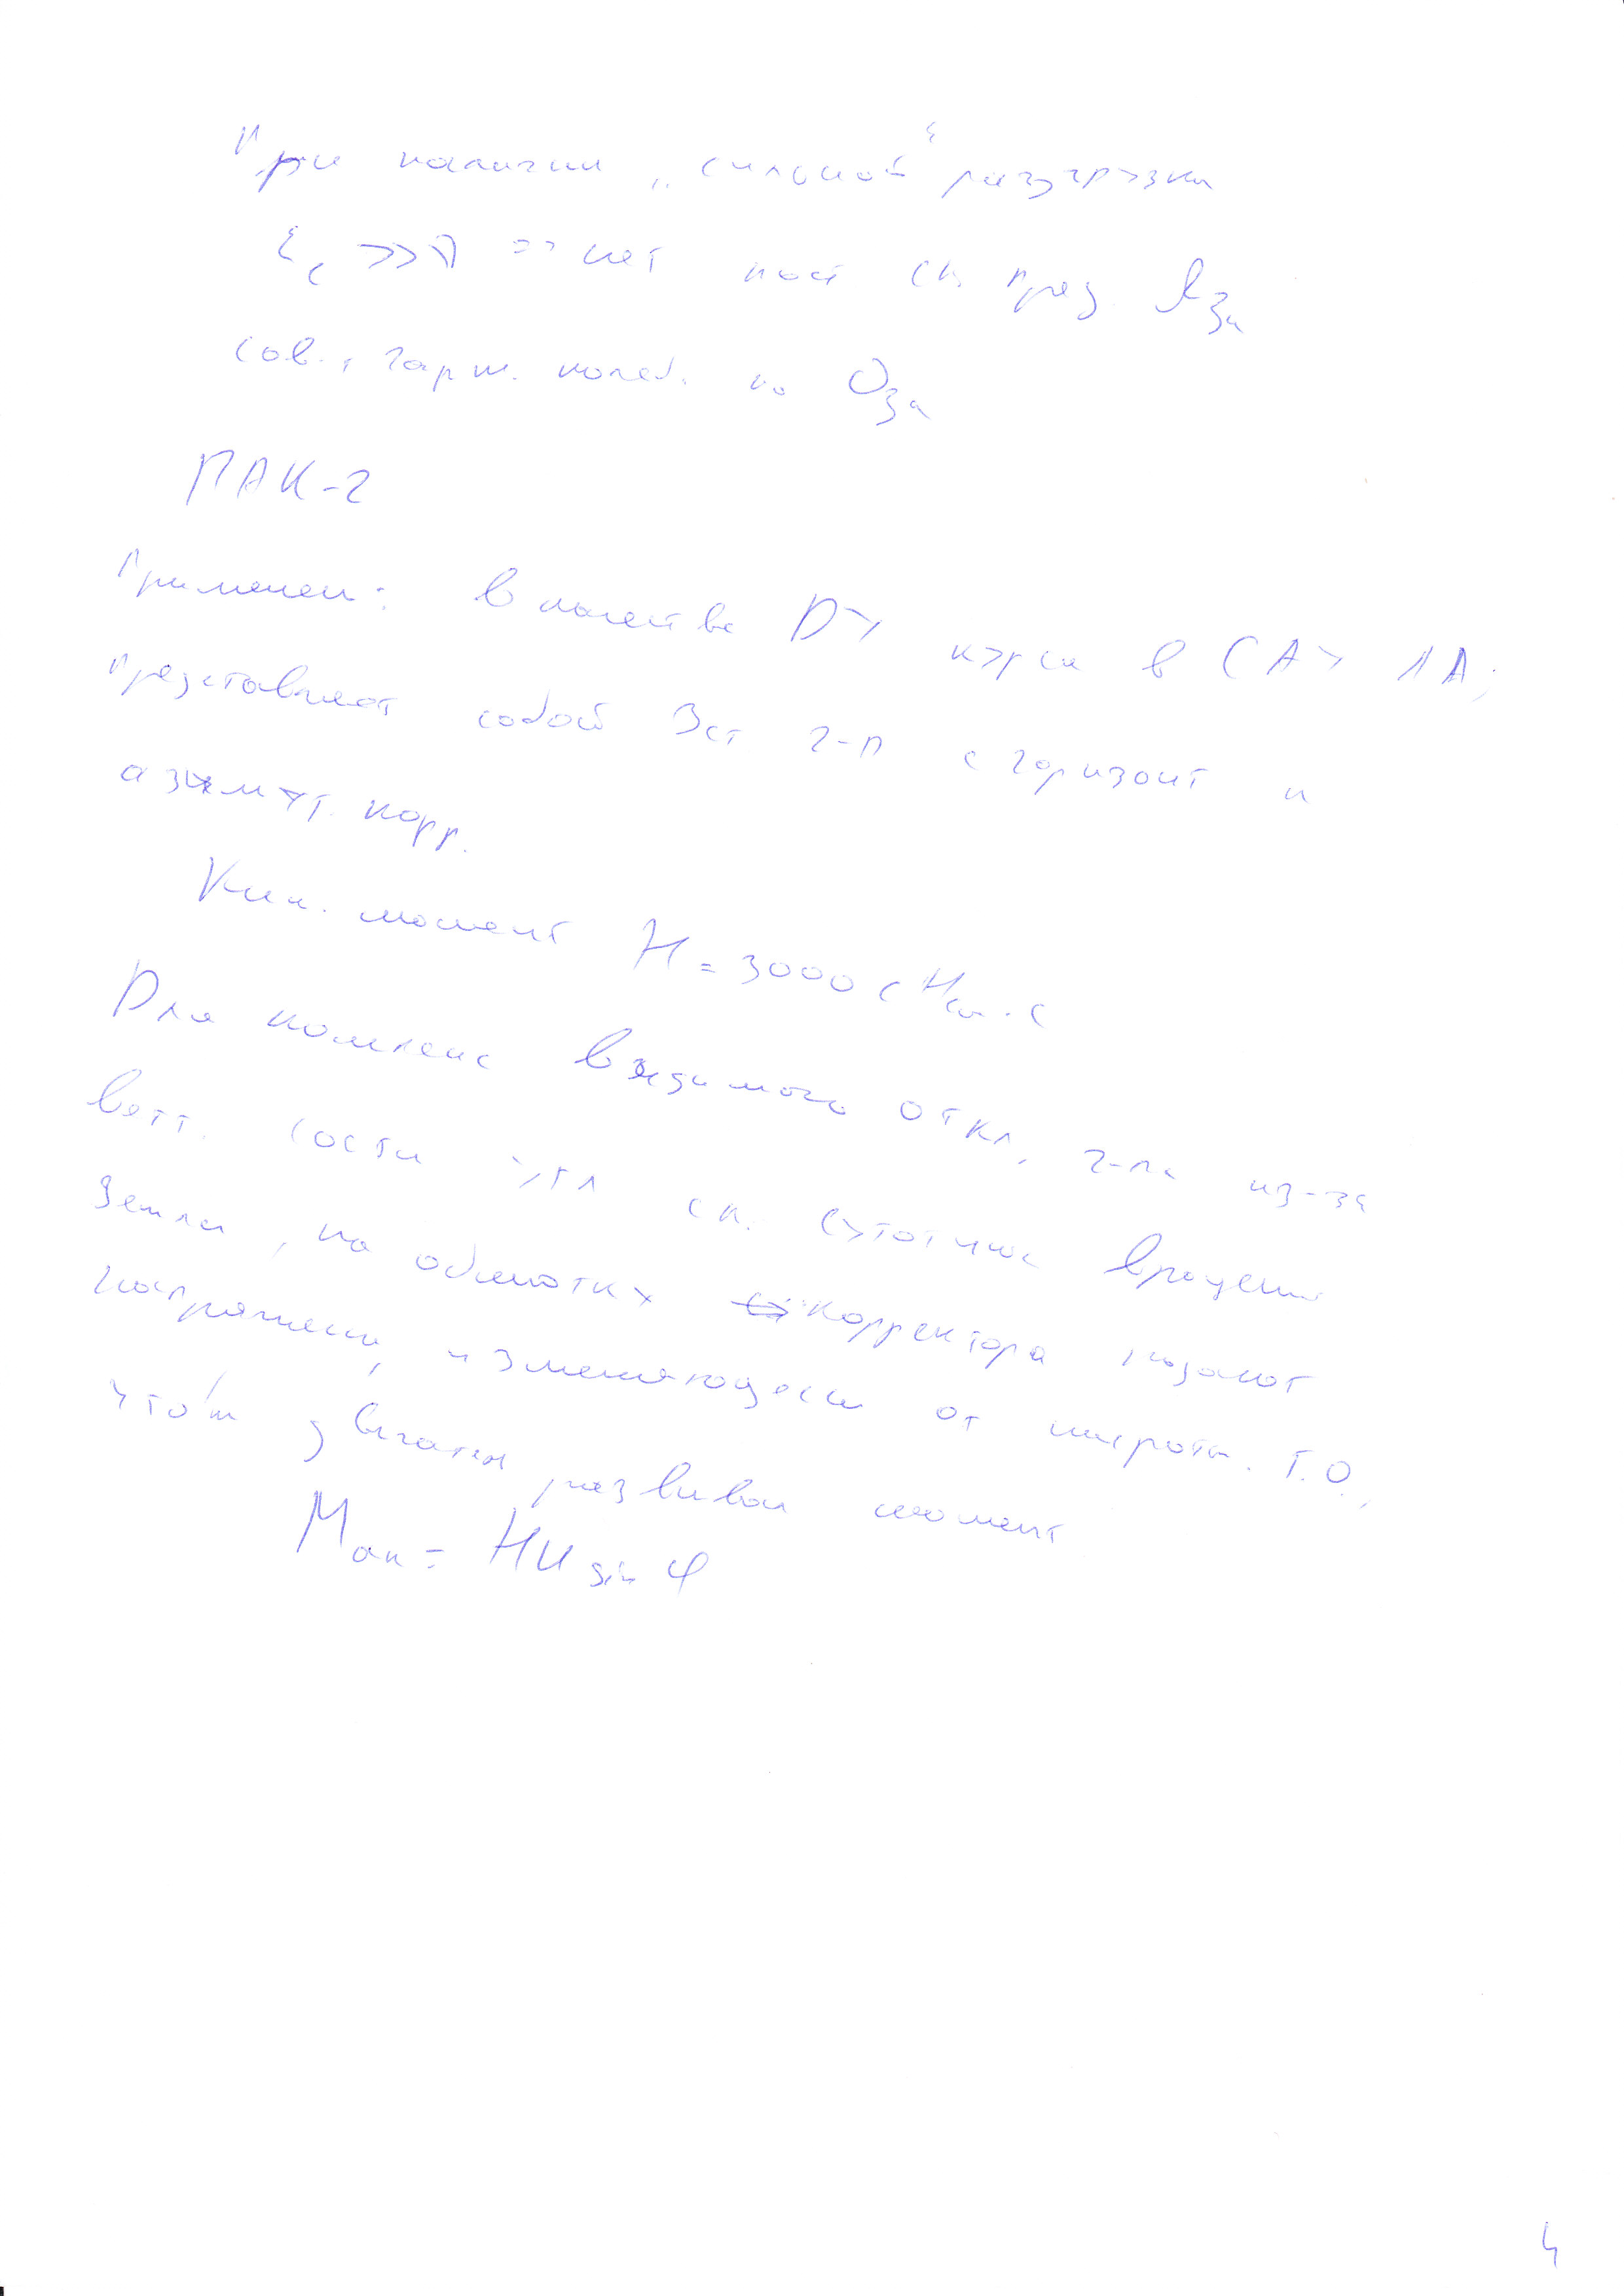 При наличии „сильной“ разгрузки
ξc >> 1 => нет пост ск. прец.
сов., гарм. колеб. по Oза
ПАК-2
Применен: в качестве ДУ курса в САУ ЛА;
представляет собой 3ст г-п с горизонт и
азимут. корр.
Кин. момент H = 3000 сНсм·с
Для компенс видимого откл. г-па из-за
верт. сост угл ск. суточние вращени
Земли, на обмотку корректора подают
напряжени, изменяющееся от широты. Т.О.,
чтобы двигатель развивал момент
Mак = HU sin φ
4